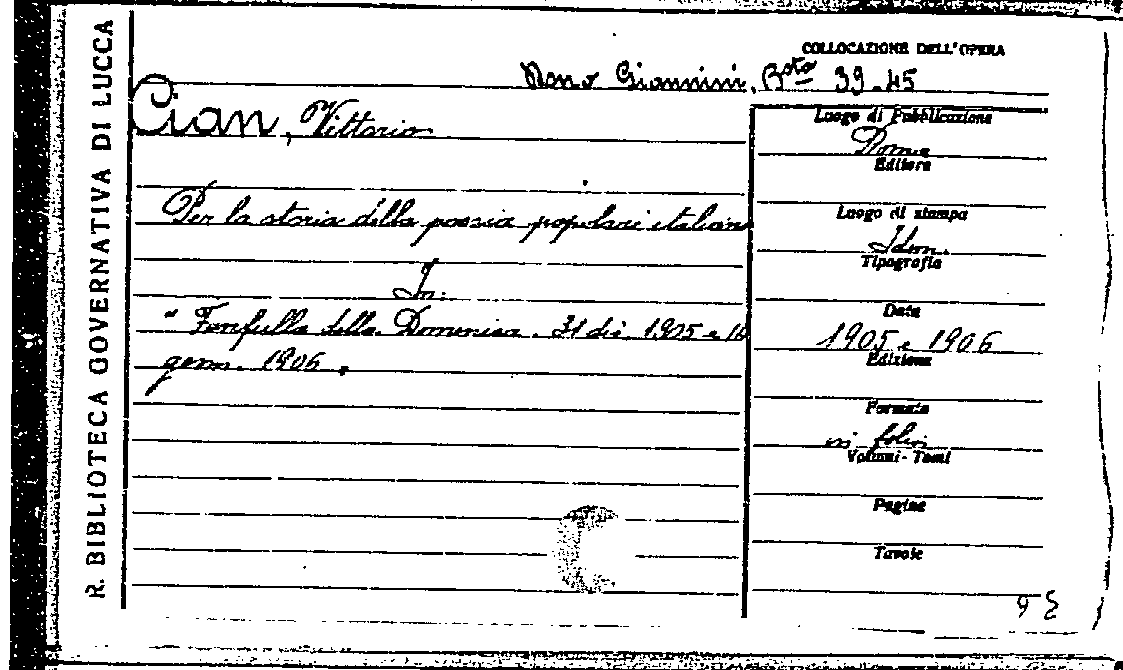 R. BIBLIOTECA GOVERNATIVA DI LUCCA
COLLOCAZIONE DELL'OPERA
Giannini, Bsta 39.45
Cian, Vittorio
Per la storia della poesia popolare italiana
In:
"Fanfulla della Domenica. 31 dic. 1905 e 14
genn. 1906.
Luogo di Pubblicazione
Roma
Editore
Luogo di stampa
Idem.
Tipografia
Data
1905 e 1906
Edizione
Formato
in folio
Volumi - Tomi
Pagine
Tavole